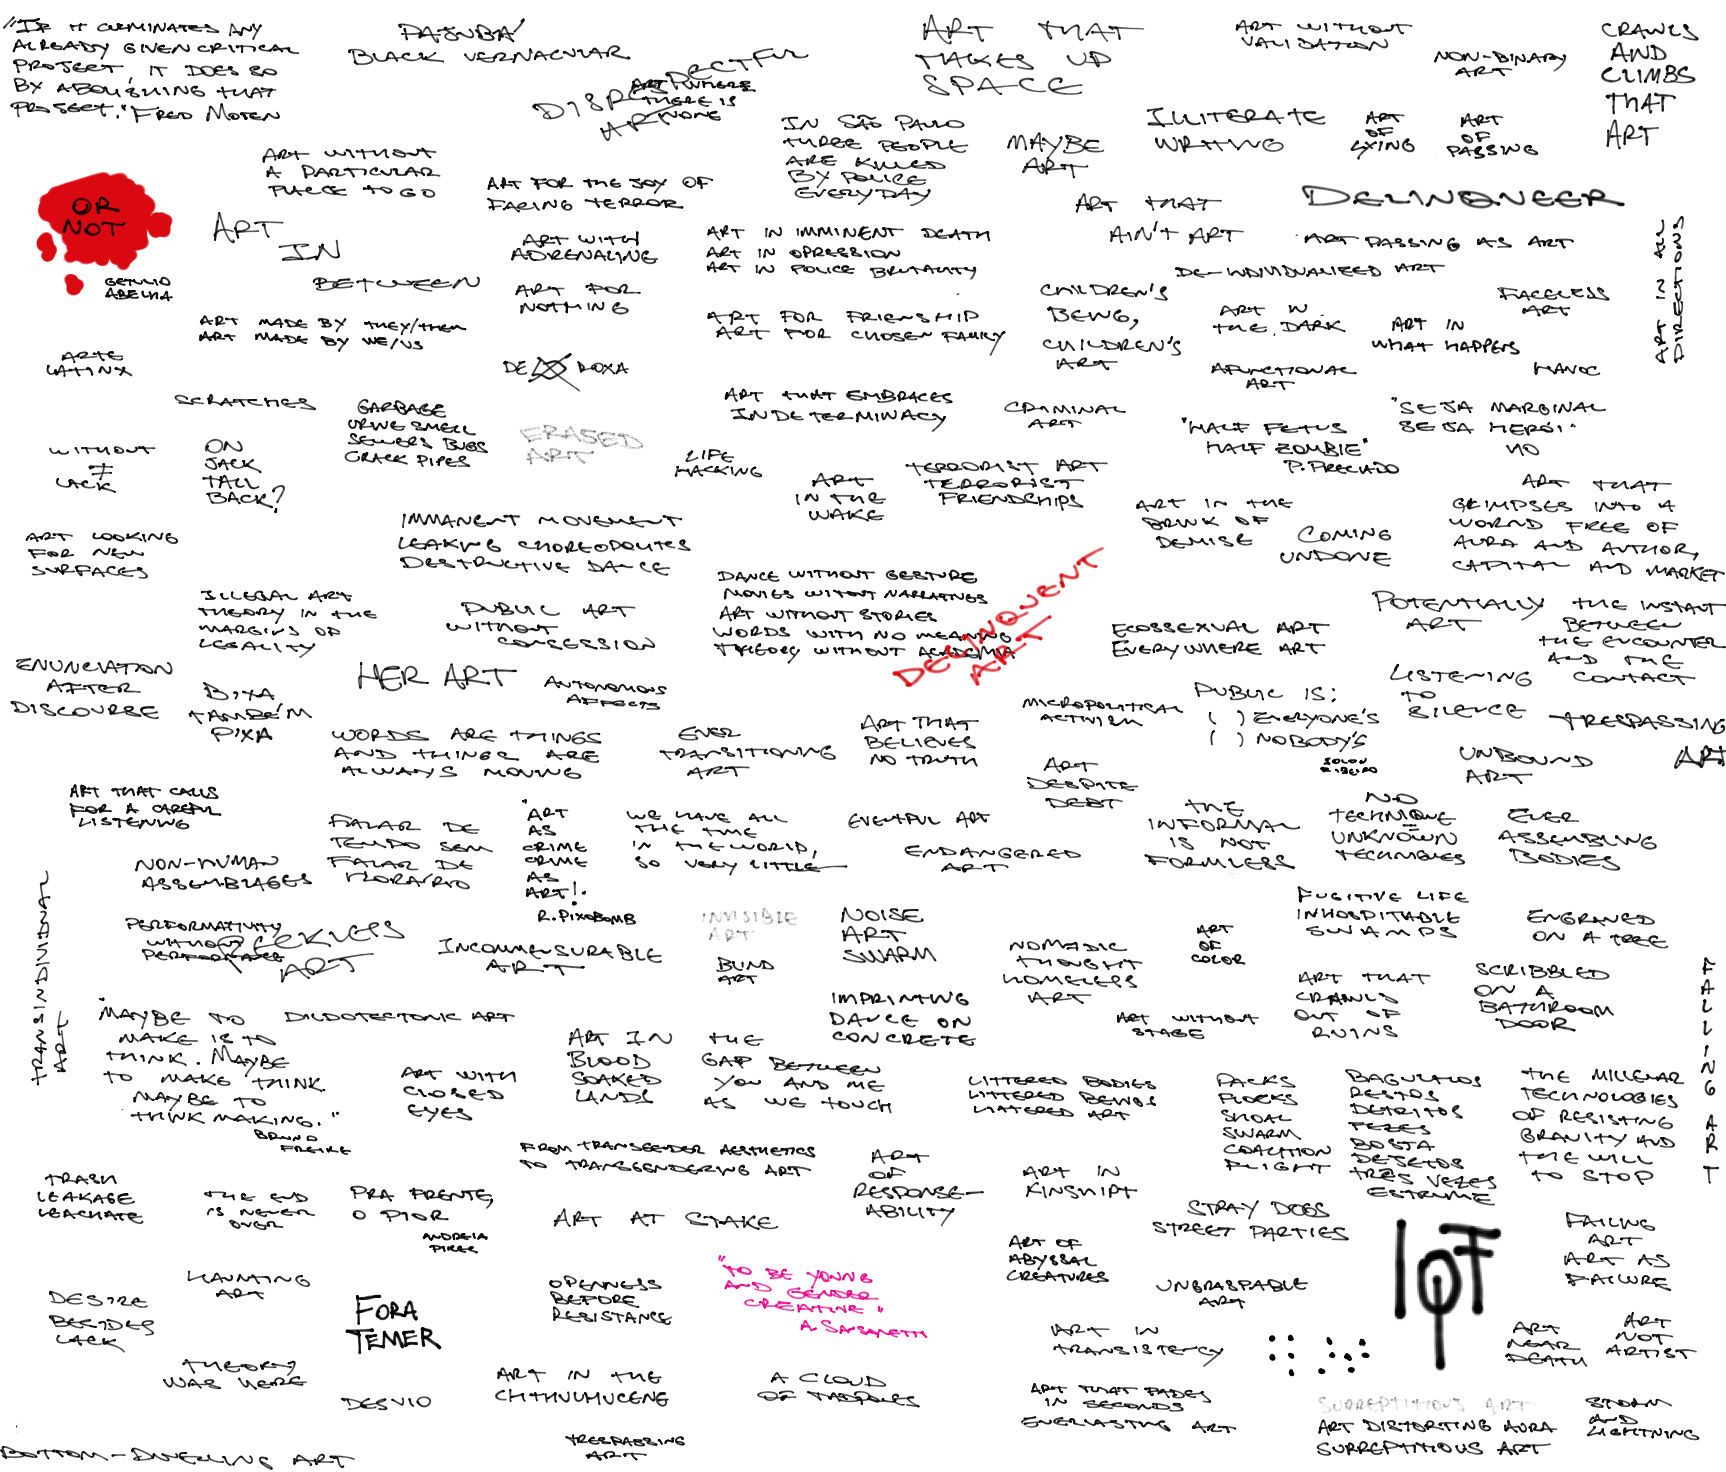 "IF IT CULMINATES ANY
ALREADY GIVEN CRITICAL
PROJECT, IT DOES SO
BY ABOLISHING THAT
PROJECT." FRED MOTEN
PAJUBÁ
BLACK VERNACULAR
DISRESPECTFUL
ART
ART WHERE
THERE IS
NONE
ART THAT
TAKES UP
SPACE
ART WITHOUT
VALIDATION
NON-BINARY
ART
CRAWLS
AND
CLIMBS
THAT
ART
ART WITHOUT
A PARTICULAR
PLACE TO GO
ART FOR THE JOY OF
FACING TERROR
IN SÃO PAULO
THREE PEOPLE
ARE KILLED
BY POLICE
EVERYDAY
MAYBE
ART
ILLITERATE
WRITING
ART
OF
LYING
ART
OF
PASSING
OR
NOT
GETULIO
ABELHA
ART
IN
BETWEEN
ART WITH
ADRENALINE
ART IN IMMINENT DEATH
ART IN OPRESSION
ART IN POLICE BRUTALITY
ART THAT
AIN'T ART
DELINQUEER
ART PASSING AS ART
DE-INDIVIDUALIZED ART
ART IN ALL
DIRECTIONS
ART MADE BY THEY/THEM
ART MADE BY WE/US
ART FOR
NOTHING
ART FOR FRIENDSHIP
ART FOR CHOSEN FAMILY
CHILDREN'S
BEING,
CHILDREN'S
ART
ART IN
THE DARK
ART IN
WHAT HAPPENS
FACELESS
ART
ARTE
LATINX
DE DOXA
AFUNCTIONAL
ART
HAVOC
SCRATCHES
GARBAGE
URINE SMELL
SEWERS BUGS
CRACK PIPES
ERASED
ART
ART THAT EMBRACES
INDETERMINACY
CRIMINAL
ART
"HALF FETUS
HALF ZOMBIE"
P. PRECIADO
"SEJA MARGINAL
SEJA HERÓI"
NO
WITHOUT
≠
LACK
ON
JACK
TALL
BACK?
LIFE
HACKING
ART
IN THE
WAKE
TERRORIST ART
TERRORIST
FRIENDSHIPS
ART IN THE
BRINK OF
DEMISE
COMING
UNDONE
ART THAT
GRIMPSES INTO A
WORLD FREE OF
AURA AND AUTHOR,
CAPITAL AND MARKET
ART LOOKING
FOR NEW
SURFACES
IMMANENT MOVEMENT
LEAKING CHOREOPOLITICS
DESTRUCTIVE DANCE
ILLEGAL ART
THEORY IN THE
MARGINS OF
LEGALITY
PUBLIC ART
WITHOUT
CONSESSION
DANCE WITHOUT GESTURE
MOVIES WITHOUT NARRATINGS
ART WITHOUT STORIES
WORDS WITH NO MEANING
THEORY WITHOUT ACADEMIA
DELINQUENT
ART
ECOSSEXUAL ART
EVERYWHERE ART
POTENTIALLY
ART
THE INSTANT
BETWEEN
THE ENCOUNTER
AND THE
CONTACT
ENUNCIATION
AFTER
DISCOURSE
BIXA
TAMBÉM
PIXA
HER ART
AUTONOMOUS
AFFECTS
WORDS ARE THINGS
AND THINGS ARE
ALWAYS MOVING
EVER
TRANSITIONING
ART
ART THAT
BELIEVES
NO TRUTH
MICROPOLITICAL
ACTIVISM
PUBLIC IS:
( ) EVERYONE'S
( ) NOBODY'S
SOLON
RIBEIRO
LISTENING
TO
SILENCE
TRESPASSING
ART
UNBOUND
ART
ART
DESPITE
DEBT
ART THAT CALLS
FOR A CAREFUL
LISTENING
FALAR DE
TEMPO SEM
FALAR DE
FLORA/RIO
"ART
AS
CRIME
CRIME
AS
ART!"
R. PIXOBOMB
WE HAVE ALL
THE TIME
IN THE WORLD,
SO VERY LITTLE
EVENTFUL ART
ENDANGERED
ART
THE
INFORMAL
IS NOT
FORMLESS
NO
TECHNIQUE
UNKNOWN
TECHNIQUES
EVER
ASSEMBLING
BODIES
NON-HUMAN
ASSEMBLAGES
TRANSINDIVIDUAL
ART
PERFORMATIVITY
WITHOUT
PERFORMANCE
RECKLESS
ART
INCOMMENSURABLE
ART
INVISIBLE
ART
BLIND
ART
NOISE
ART
SWARM
NOMADIC
THOUGHT
HOMELESS
ART
ART
OF
COLOR
FUGITIVE LIFE
INHOSPITABLE
SWAMPS
ENGRAVED
ON A TREE
ART THAT
CRAWLS
OUT OF
RUINS
SCRIBBLED
ON A
BATHROOM
DOOR
FALLING ART
"MAYBE TO
MAKE IS TO
THINK. MAYBE
TO MAKE THINK.
MAYBE TO
THINK MAKING."
BRUNO
FREIRE
DILDOTECTONIC ART
IMPRINTING
DANCE ON
CONCRETE
ART WITHOUT
STAGE
ART WITH
CLOSED
EYES
ART IN
BLOOD
SOAKED
LANDS
THE
GAP BETWEEN
YOU AND ME
AS WE TOUCH
LITTERED BODIES
LITTERED BEINGS
LITTERED ART
PACKS
FLOCKS
SHOAL
SWARM
COALITION
FLIGHT
BAGULHOS
RESTOS
DETRITOS
FEZES
BOSTA
DEJETOS
TRÊS VEZES
ESTRUME
THE MILLENAR
TECHNOLOGIES
OF RESISTING
GRAVITY AND
THE WILL
TO STOP
FROM TRANSGENDER AESTHETICS
TO TRANSGENDERING ART
ART
OF
RESPONSE-
ABILITY
ART IN
KINSHIPT
TRASH
LEAKAGE
LEACHATE
THE END
IS NEVER
OVER
PRA FRENTE,
O PIOR
ANDREIA
PIRES
ART AT STAKE
STRAY DOGS
STREET PARTIES
FAILING
ART
ART AS
FAILURE
ART OF
ABYSSAL
CREATURES
UNGRASPABLE
ART
HAUNTING
ART
DESIRE
BESIDES
LACK
FORA
TEMER
OPENNESS
BEFORE
RESISTANCE
"TO BE YOUNG
AND GENDER
CREATIVE"
ART IN
TRANSISTENCY
ART
NEAR
DEATH
ART
NOT
ARTIST
THEORY
WAS HERE
DESVIO
ART IN THE
CHTHULHUCENE
A CLOUD
OF TADPOLES
ART THAT FADES
IN SECONDS
EVERLASTING ART
SURREPTITIOUS ART
ART DISTORTING AURA
SURREPTITIOUS ART
STORM
AND
LIGHTNING
TRESPASSING
ART
BOTTOM-DWELLING ART